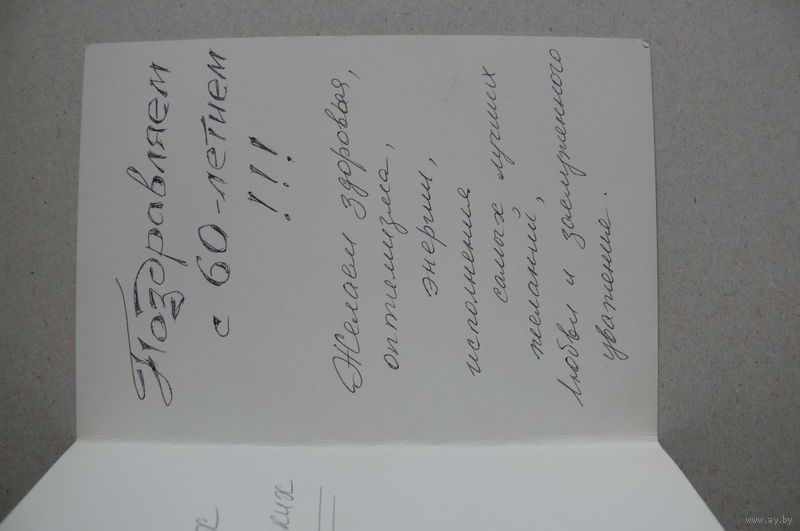 Поздравляем
с 60-летием
!!!
Желаем здоровья,
оптимизма,
энергии,
исполнения
самых лучших
желаний,
любви и заслуженного
уважения.
www.ay.by